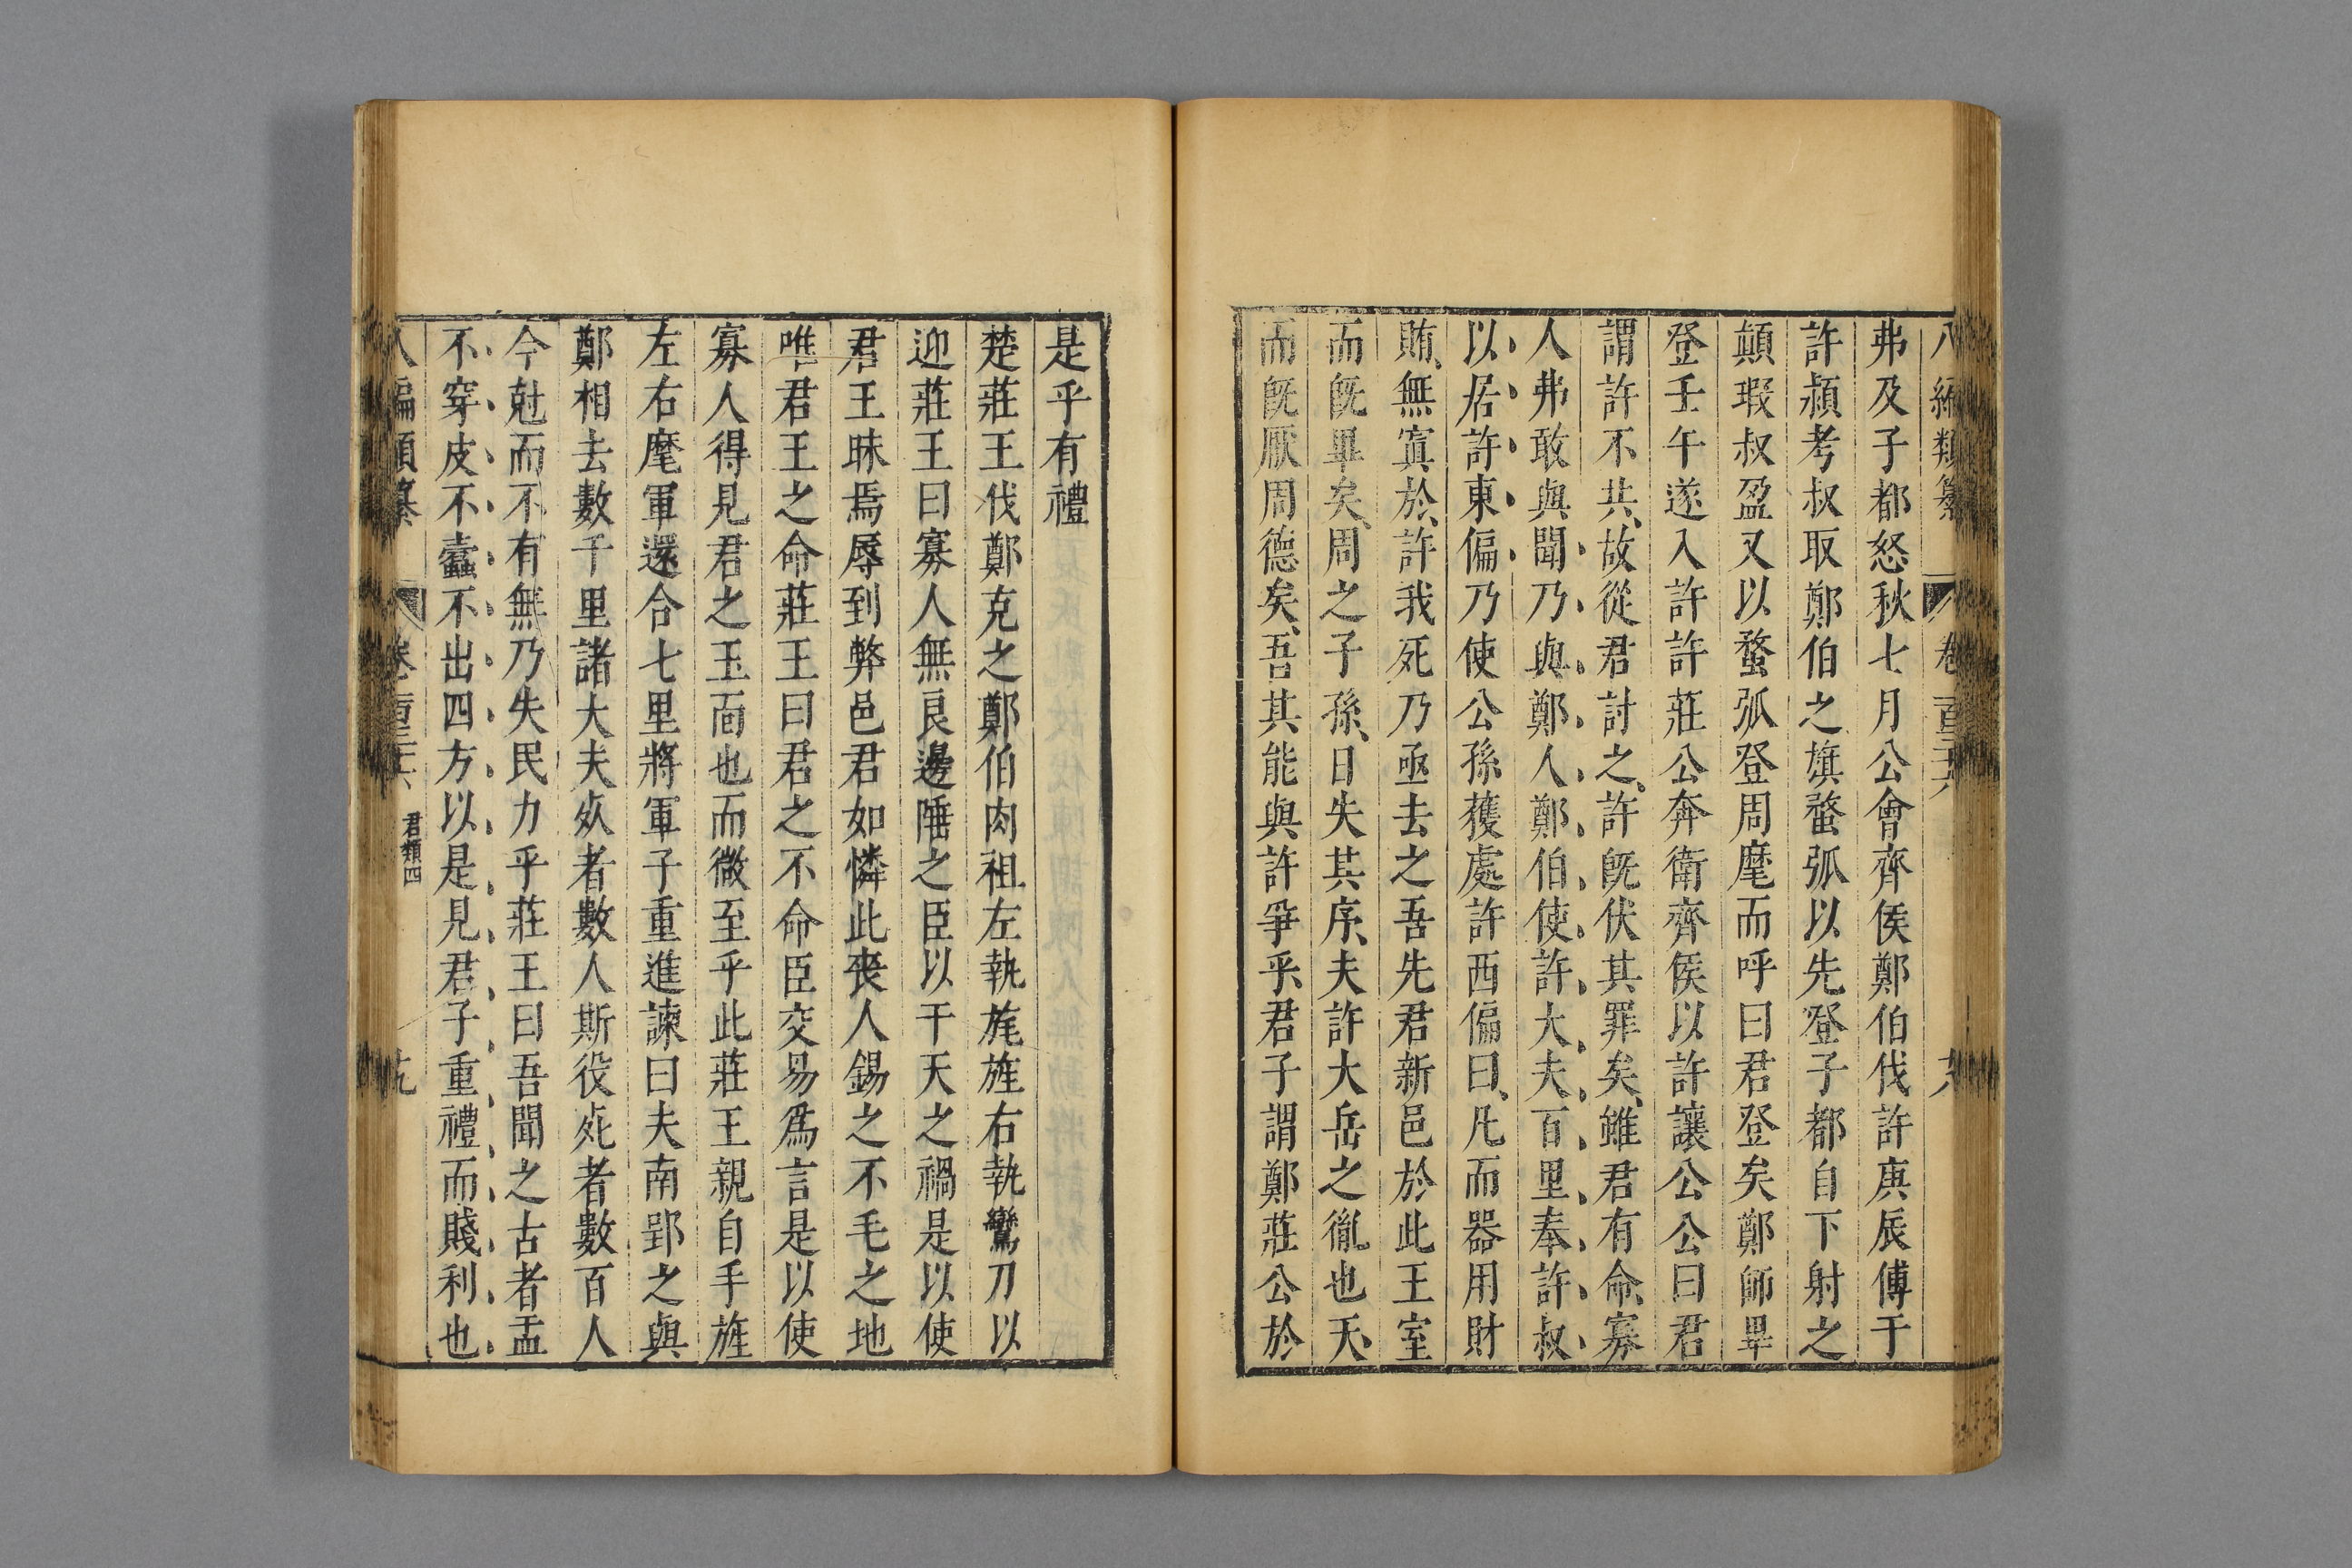 八編類纂 卷一百三十六 十八
弗及子都怒秋七月公會齊侯鄭伯伐許庚辰傅于
許潁考叔取鄭伯之旗蝥弧以先登子都自下射之
顛瑕叔盈又以蝥弧登周麾而呼曰君登矣鄭師畢
登壬午遂入許許莊公奔衛齊侯以許讓公公曰君
謂許不共故從君討之許既伏其罪矣雖君有命寡
人弗敢與聞乃與鄭人鄭伯使許大夫百里奉許叔
以居許東偏乃使公孫獲處許西偏曰凡而器用財
賄無寘於許我死乃亟去之吾先君新邑於此王室
而既畢矣周之子孫日失其序夫許大岳之胤也天
而既厭周德矣吾其能與許爭乎君子謂鄭莊公於
是乎有禮
楚莊王伐鄭克之鄭伯肉袒左執旄旌右執鸞刀以
迎莊王曰寡人無良邊陲之臣以干天之禍是以使
君王昧焉辱到弊邑君如憐此喪人錫之不毛之地
唯君王之命莊王曰君之不命臣交易爲言是以使
寡人得見君之玉面也而微至乎此莊王親自手旌
左右麾軍還合七里將軍子重進諫曰夫南郢之與
鄭相去數千里諸大夫死者數人斯役死者數百人
今尅而不有無乃失民力乎莊王曰吾聞之古者盂
不穿皮不蠹不出四方以是見君子重禮而賤利也
八編類纂 卷一百三十六 君類四 十九